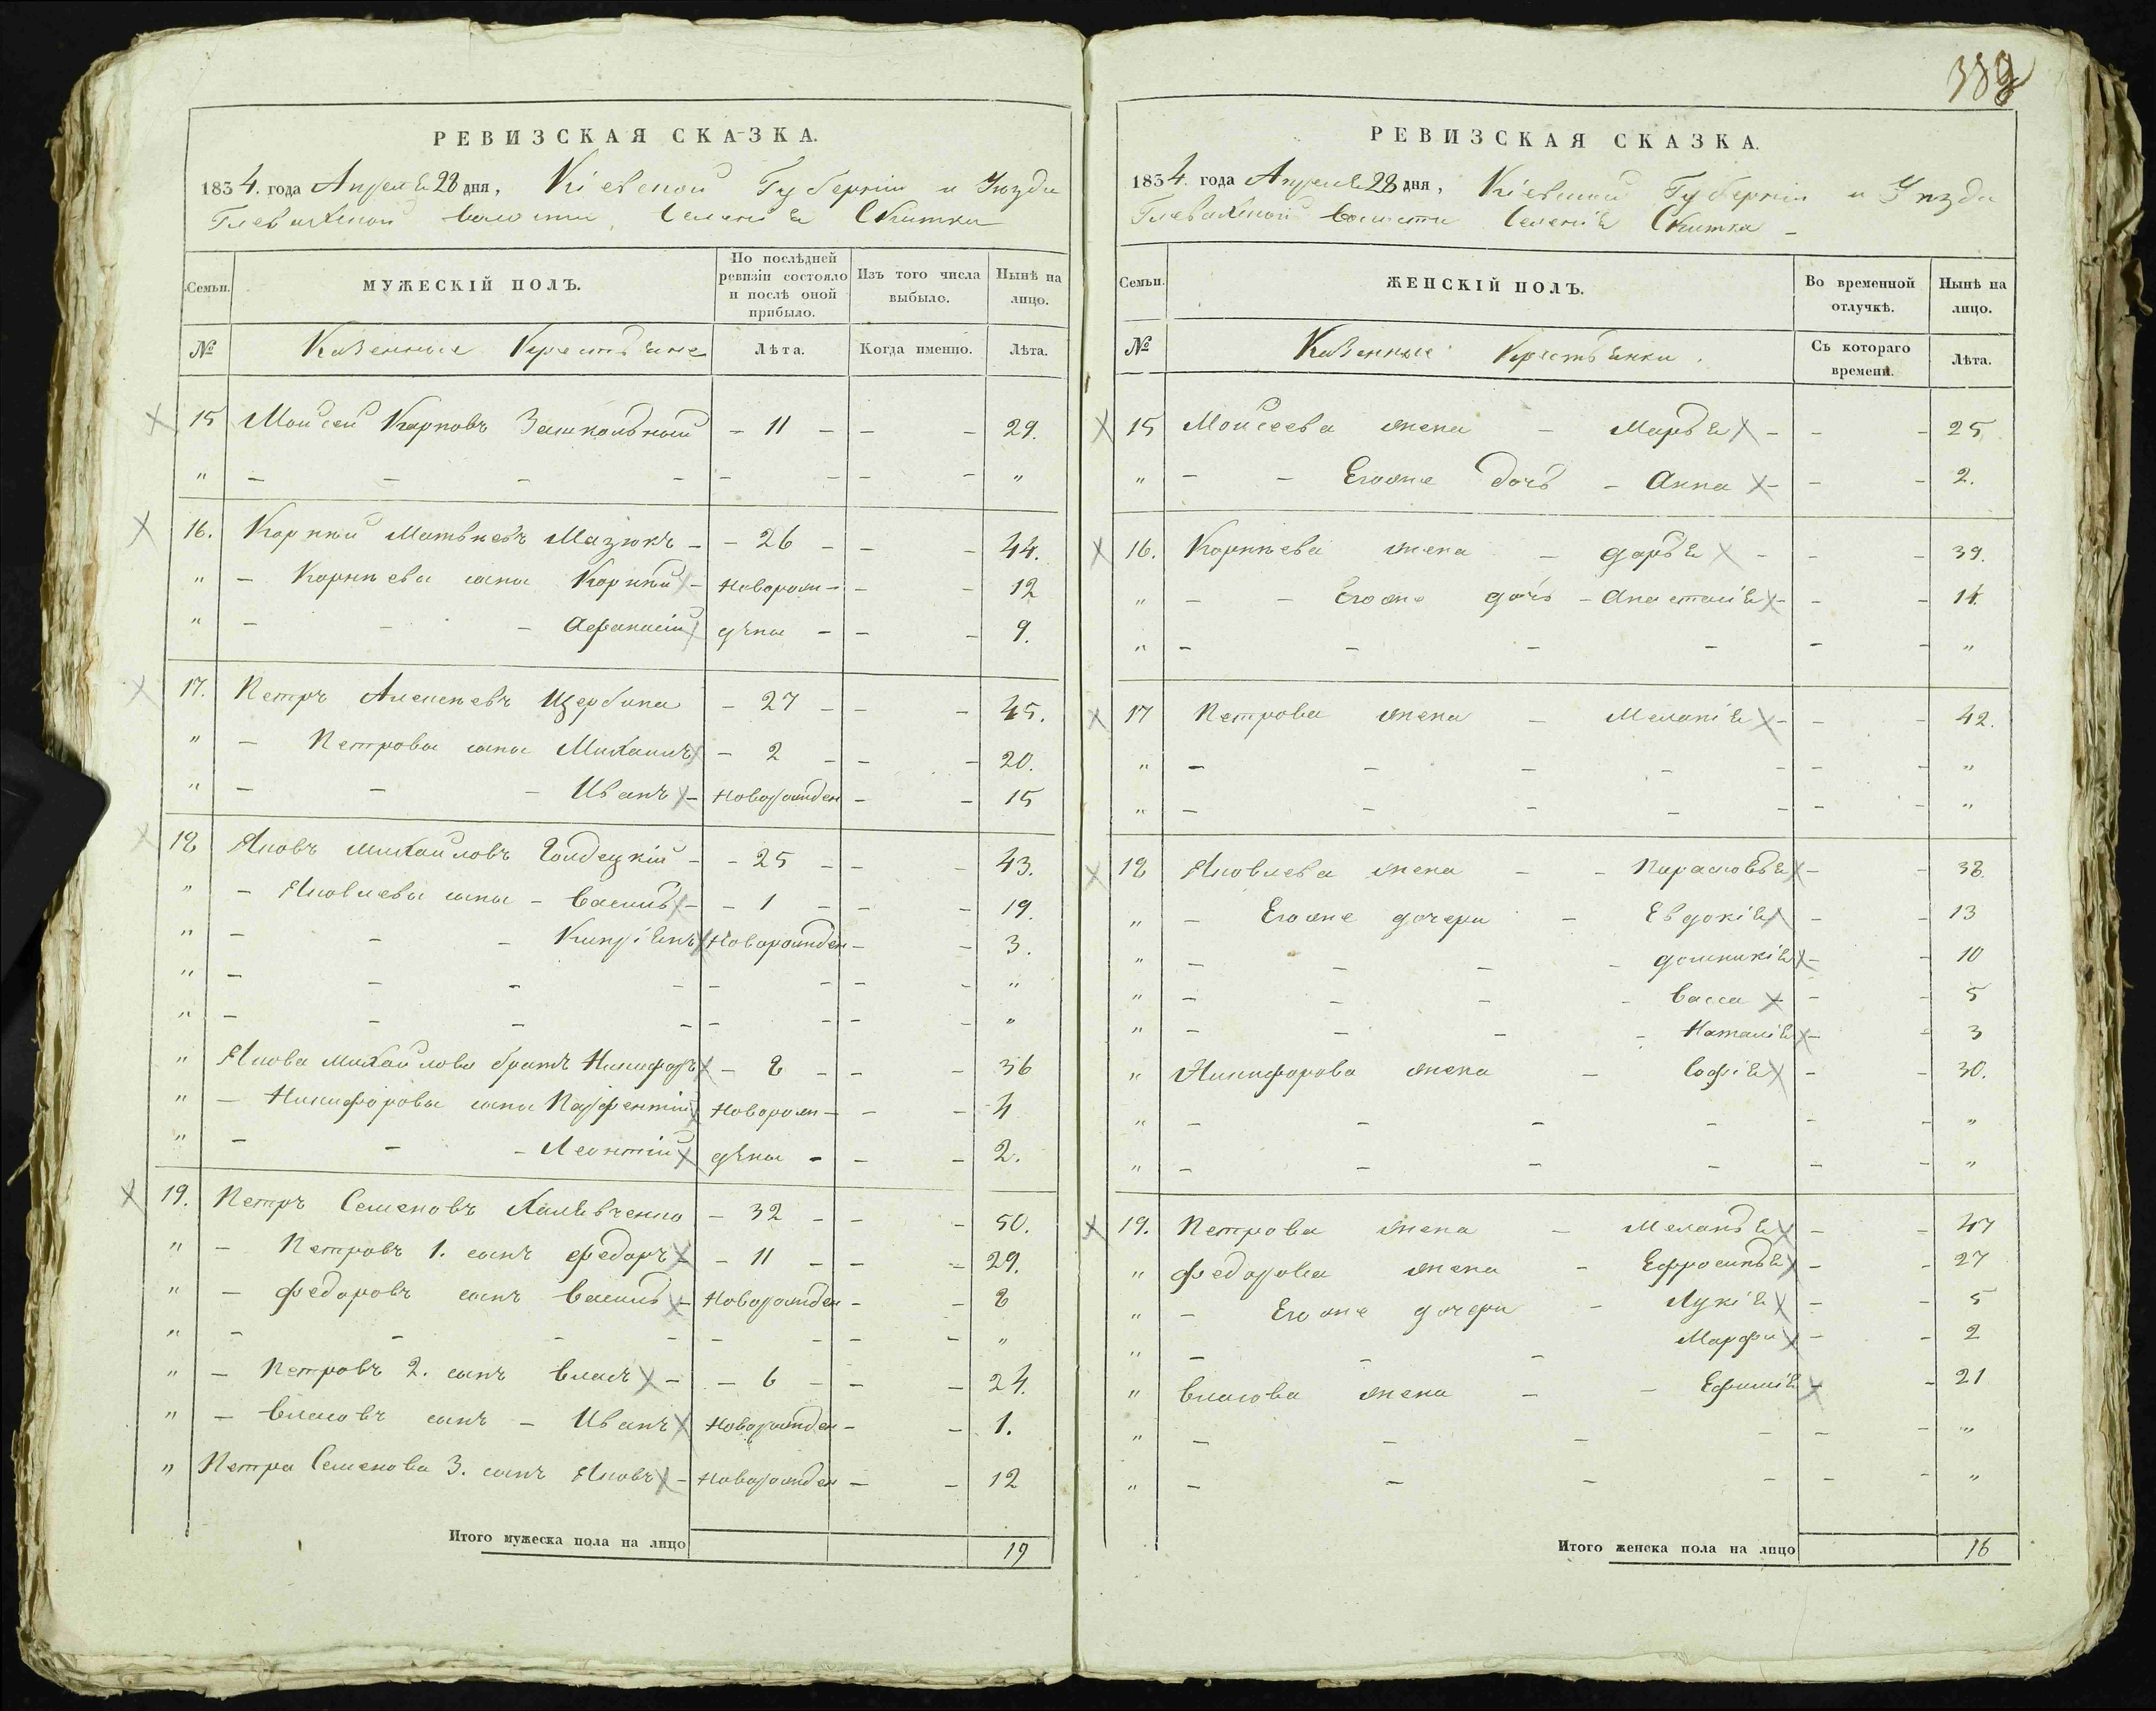 РЕВИЗСКАЯ СКАЗКА.
1834. года Апреля 28 дня, Кіевской Губерніи и Уѣзда
Глевахской волости Селенія Скитка
Семьи. МУЖЕСКІЙ ПОЛЪ. По послѣдней ревизіи состояло и послѣ оной прибыло. Изъ того числа выбыло. Нынѣ на лицо.
№ Казенные Крестьяне Лѣта. Когда именно. Лѣта.
15 Мойсей Карповъ Зашкольный - 11 - - - 29.
" - - - - - - - - "
16. Корнѣй Матвѣевъ Мазюкъ - - 26 - - - 44.
" - Корнѣевы сыны Корнѣй - Новорож- - - 12
" - - - Афанасій дѣны - - - 9.
17. Петръ Алексѣевъ Щербина - 27 - - - 45.
" - Петровы сыны Михаилъ - 2 - - - 20.
" - - - Иванъ - Новорожден - - 15
18 Яковъ Михайловъ - - 25 - - - 43.
" - Яковлевы сыны - Василь - - 1 - - - 19.
" - - - Кипріянъ Новорожден - - 3.
" - - - - - - - - - "
" - - - - - - - - - "
" Якова Михайлова братъ Никифоръ - 8 - - - 36
" - Никифоровы сыны Парфентій Новорож- - - 4
" - - - Леонтій дѣны - - - 2.
19. Петръ Семеновъ Халявченко - 32 - - - 50.
" - Петровъ 1. сынъ Федоръ - 11 - - - 29.
" - Федоровъ сынъ Василь - Новорожден - - 8
" - - - - - - - - "
" - Петровъ 2. сынъ Власъ - - 6 - - - 24.
" - Власовъ сынъ - Иванъ Новорожден - - 1.
" Петра Семенова 3. сынъ Яковъ - Новорожден - - 12
Итого мужеска пола на лицо 19
РЕВИЗСКАЯ СКАЗКА.
1834. года Апреля 28 дня, Кіевской Губерніи и Уѣзда
Глевахской волости Селенія Скитка -
Семьи. ЖЕНСКІЙ ПОЛЪ. Во временной отлучкѣ. Нынѣ на лицо.
№ Казенные Крестьянки. Съ котораго времени. Лѣта.
15 Мойсеева жена - Марья - - - 25
" - - Егоже дочь - Анна - - - 2.
16. Корнѣева жена - Дарья - - - 39.
" - - Егоже дочь - Анастасія - - - 14.
" - - - - - - "
17 Петрова жена - Меланія - - - 42.
" - - - - - - - "
" - - - - - - - "
18 Яковлева жена - - Парасковья - - 38.
" - Егоже дочери - Евдокія - - 13
" - - - - Домникія - - 10
" - - - - Васса - - - 5
" - - - - Наталія - - 3
" Никифорова жена - Софія - - 30.
" - - - - - - "
" - - - - - - "
19. Петрова жена - Меланья - - 47
" Федорова жена - Ефросинья - - 27
" - Егоже дочери - Лукія - - 5
" - - - Марфа - - 2
" Власова жена - - Ефимія - - 21
" - - - - - - "
" - - - - - - "
Итого женска пола на лицо 16